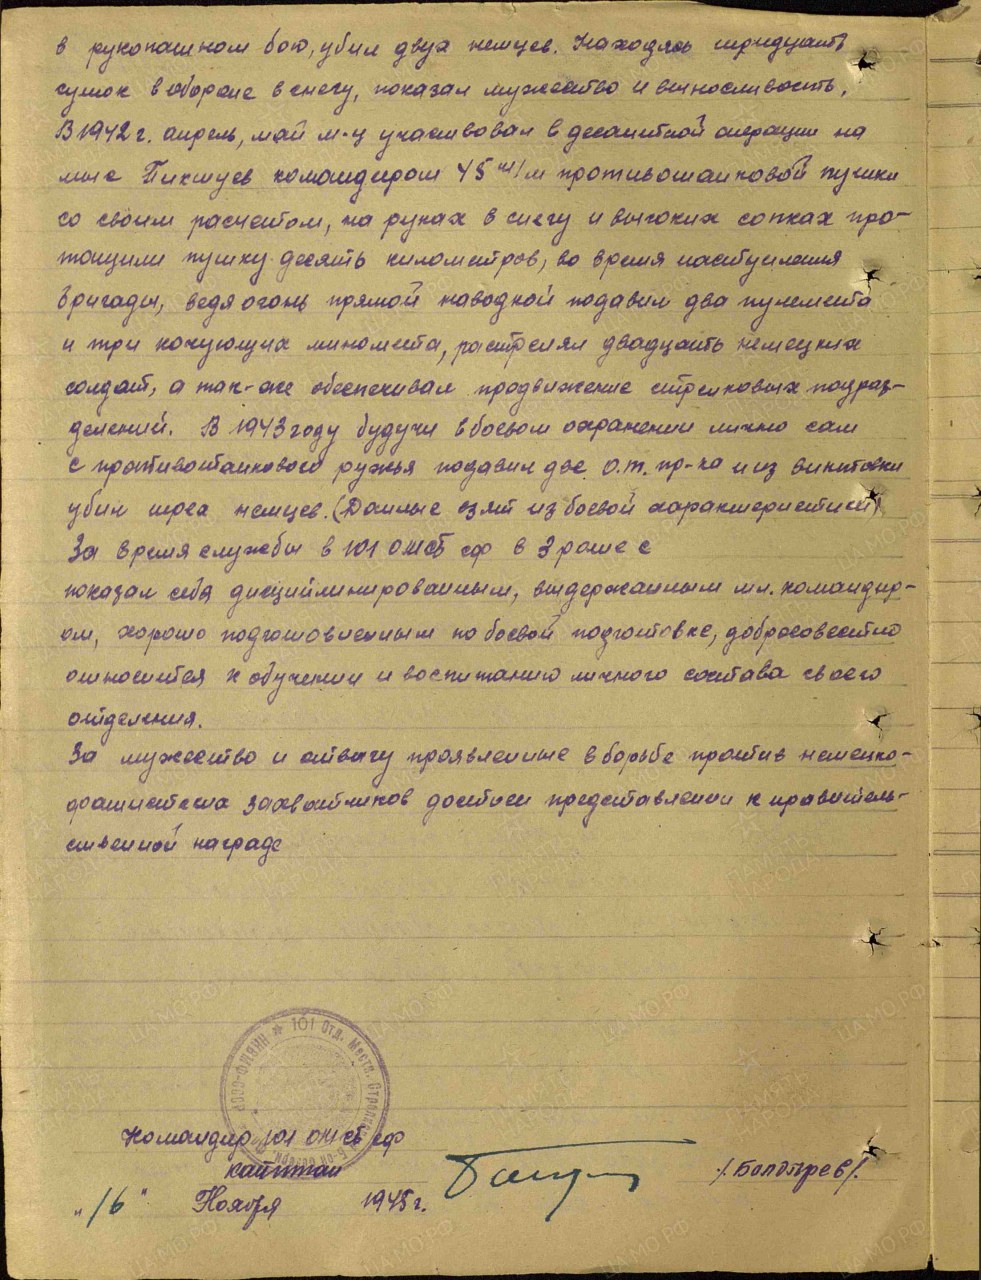 в рукопашном бою, убил двух немцев. Находясь тридцать
суток в обороне в снегу, показал мужество и выносливость,
В 1942 г. апрель, май м-ц участвовал в десантной операции на
мысе Пикшуев командиром 45 м/м противотанковой пушки
со своим расчетом, на руках в снегу и высоких сопках про-
тащили пушку десять километров, во время наступления
бригады, ведя огонь прямой наводкой подавил два пулемета
и три кочующих миномета, расстрелял двадцать немецких
солдат, а так-же обеспечивал продвижение стрелковых подраз-
делений. В 1943 году будучи в боевом охранении лично сам
с противотанкового ружья подавил две о.т. пр-ка и из винтовки
убил трех немцев. (Данные взят из боевой характеристики)
За время службы в 101 ОМСБ СФ в 3 роте с
показал себя дисциплинированным, выдержанным мл. командир-
ом, хорошо подготовленным по боевой подготовке, добросовестно
относится к обучении и воспитанию личного состава своего
отделения.
За мужество и отвагу проявленные в борьбе против немецко-
фашистских захватчиков достоен представлении к правитель-
ственной награде
101 Отд. Местн. Стрелковый Б-он
Командир 101 ОМСБ СФ
капитан
/Болдырев/.
"16" Ноября 1945 г.
ЦАМО.РФ
ПАМЯТЬ
НАРОДА